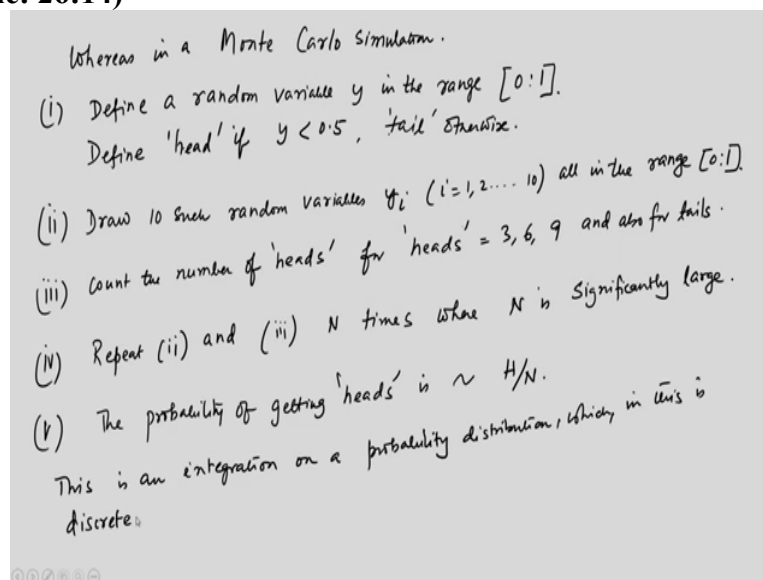 Whereas in a Monte Carlo simulation.
(i) Define a random variable y in the range [0:1].
Define 'head' if y < 0.5, 'tail' otherwise.
(ii) Draw 10 such random variables yi (i = 1, 2 .... 10) all in the range [0:1].
(iii) Count the number of 'heads' for 'heads' = 3, 6, 9 and also for tails.
(iv) Repeat (ii) and (iii) N times where N is significantly large.
(v) The probability of getting 'heads' is ~ H/N.
This is an integration on a probability distribution, which, in this is
discrete.